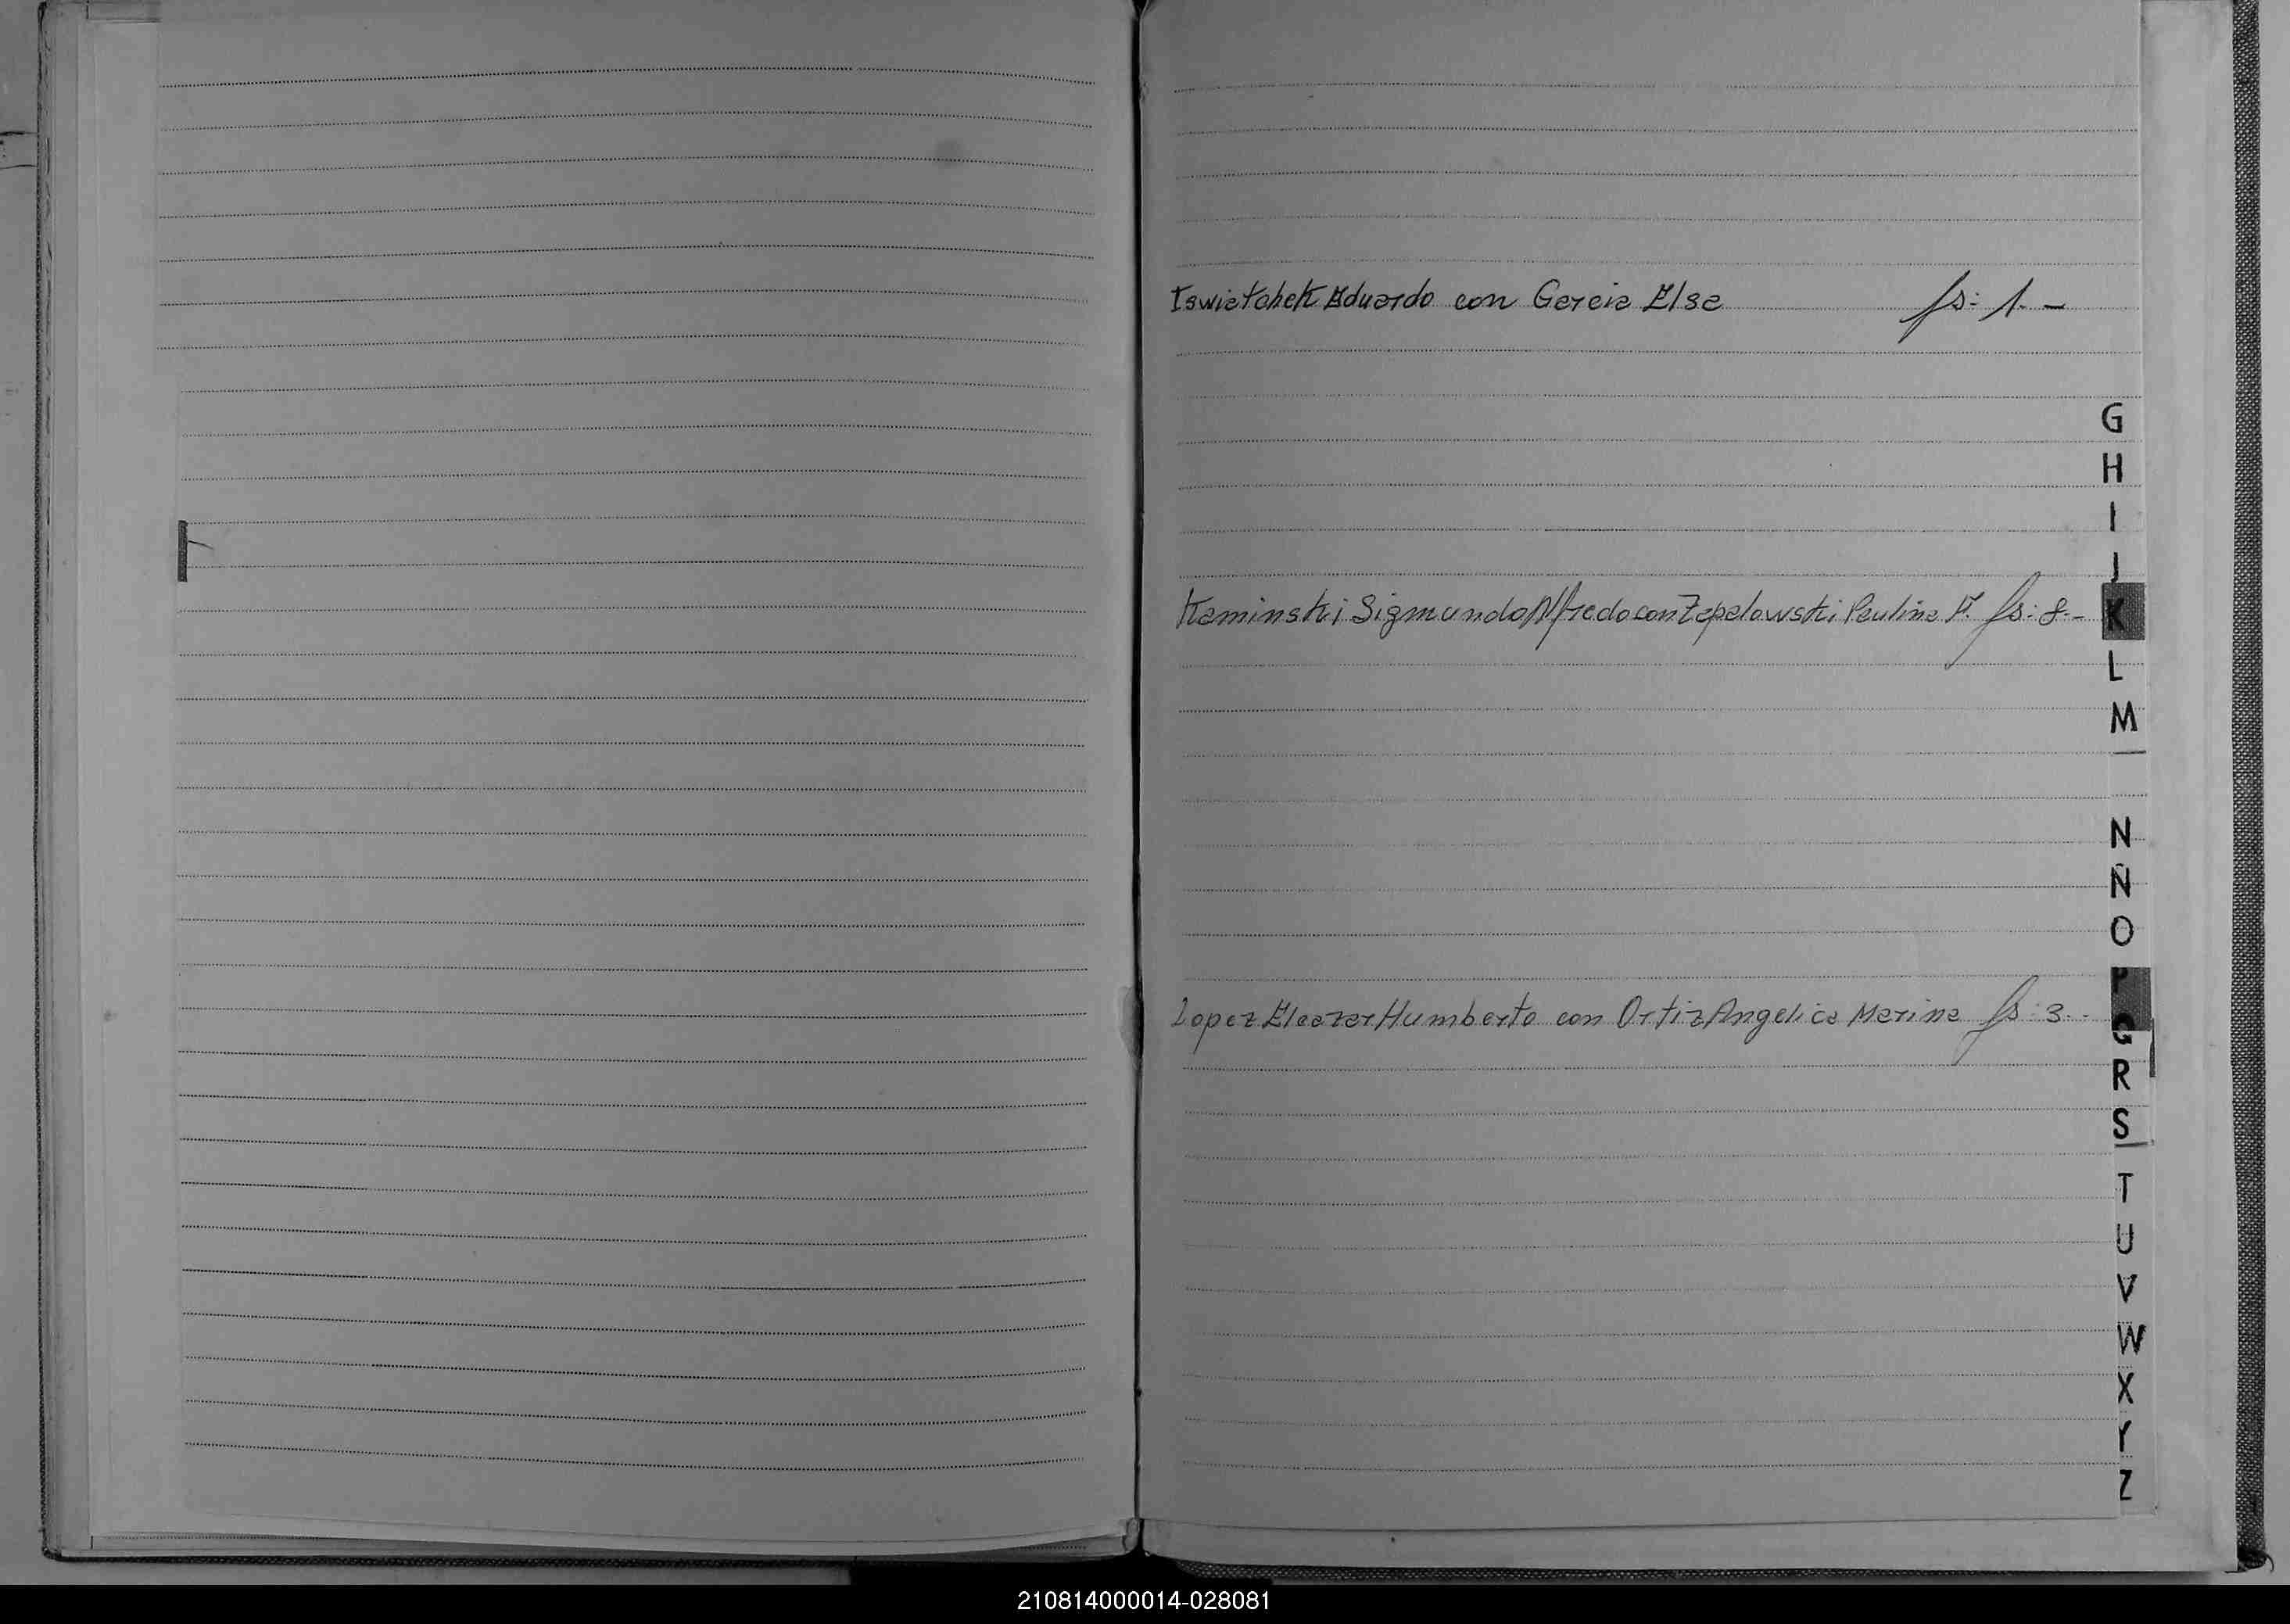 Iswietchek Eduardo con Garcia Elsa fs: 1.-
G
H
I
J
Kaminski Sigmundo Alfredo con Zepelowski Paulina F. fs: 8.-
K
L
M
N
Ñ
O
P
Lopez Eleazar Humberto con Ortiz Angelica Marina fs: 3.-
R
S
T
U
V
W
X
Y
Z
210814000014-028081